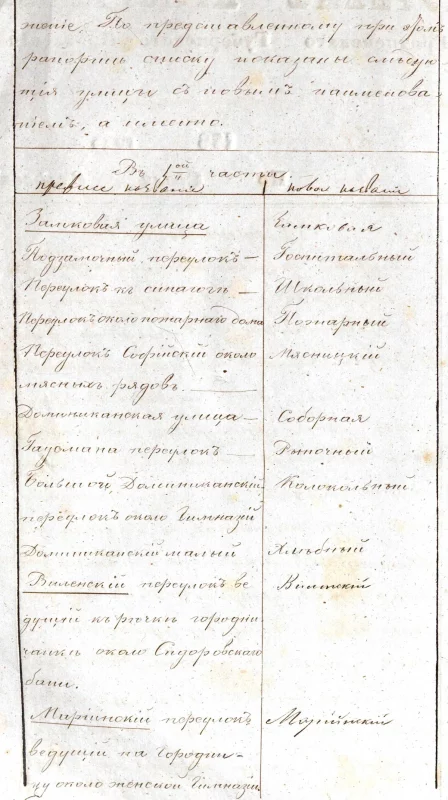 женіе. По представленному при этомъ
рапортѣ списку показаны слѣдую-
щія улицы съ новымъ наименова-
ніемъ, а именно.
Въ 1ой части.
прежнее названіе новое названіе
Замковая улица Замковая
Подзамочный переулокъ — Госпитальный
Переулокъ къ синагогѣ — Школьный
Переулокъ около пожарнаго дома Пожарный
Переулокъ Софійскій около Мясницкій
мясныхъ рядовъ. —
Доминиканская улица — Соборная
Гадомана переулокъ — Рыночный
Большой Доминиканскій Колокольный
переулокъ около Гимназіи
Доминиканскій малый Хлѣбный
Виленскій переулокъ ве- Виленскій
дущій къ рѣчкѣ городни-
чанкѣ около Сидоровскаго
бани.
Маріинскій переулокъ Маріинскій
ведущій на Городни-
цу около женской Гимназіи